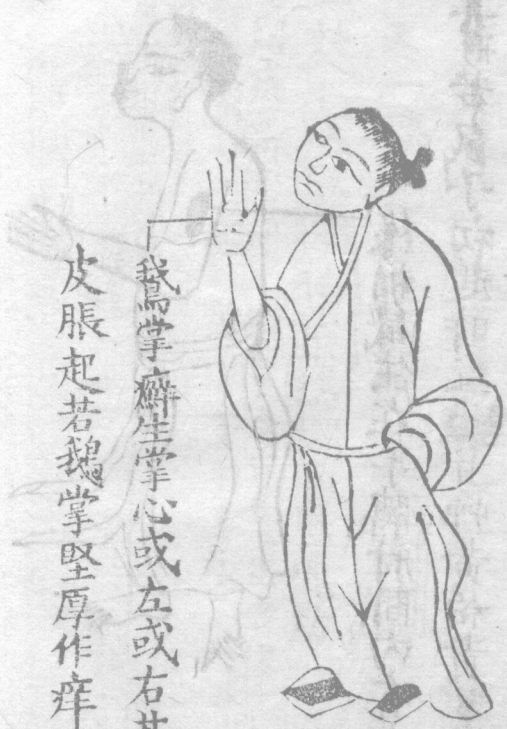 鵞掌癬生掌心或左或右其
皮脹起若鵝掌堅厚作痒